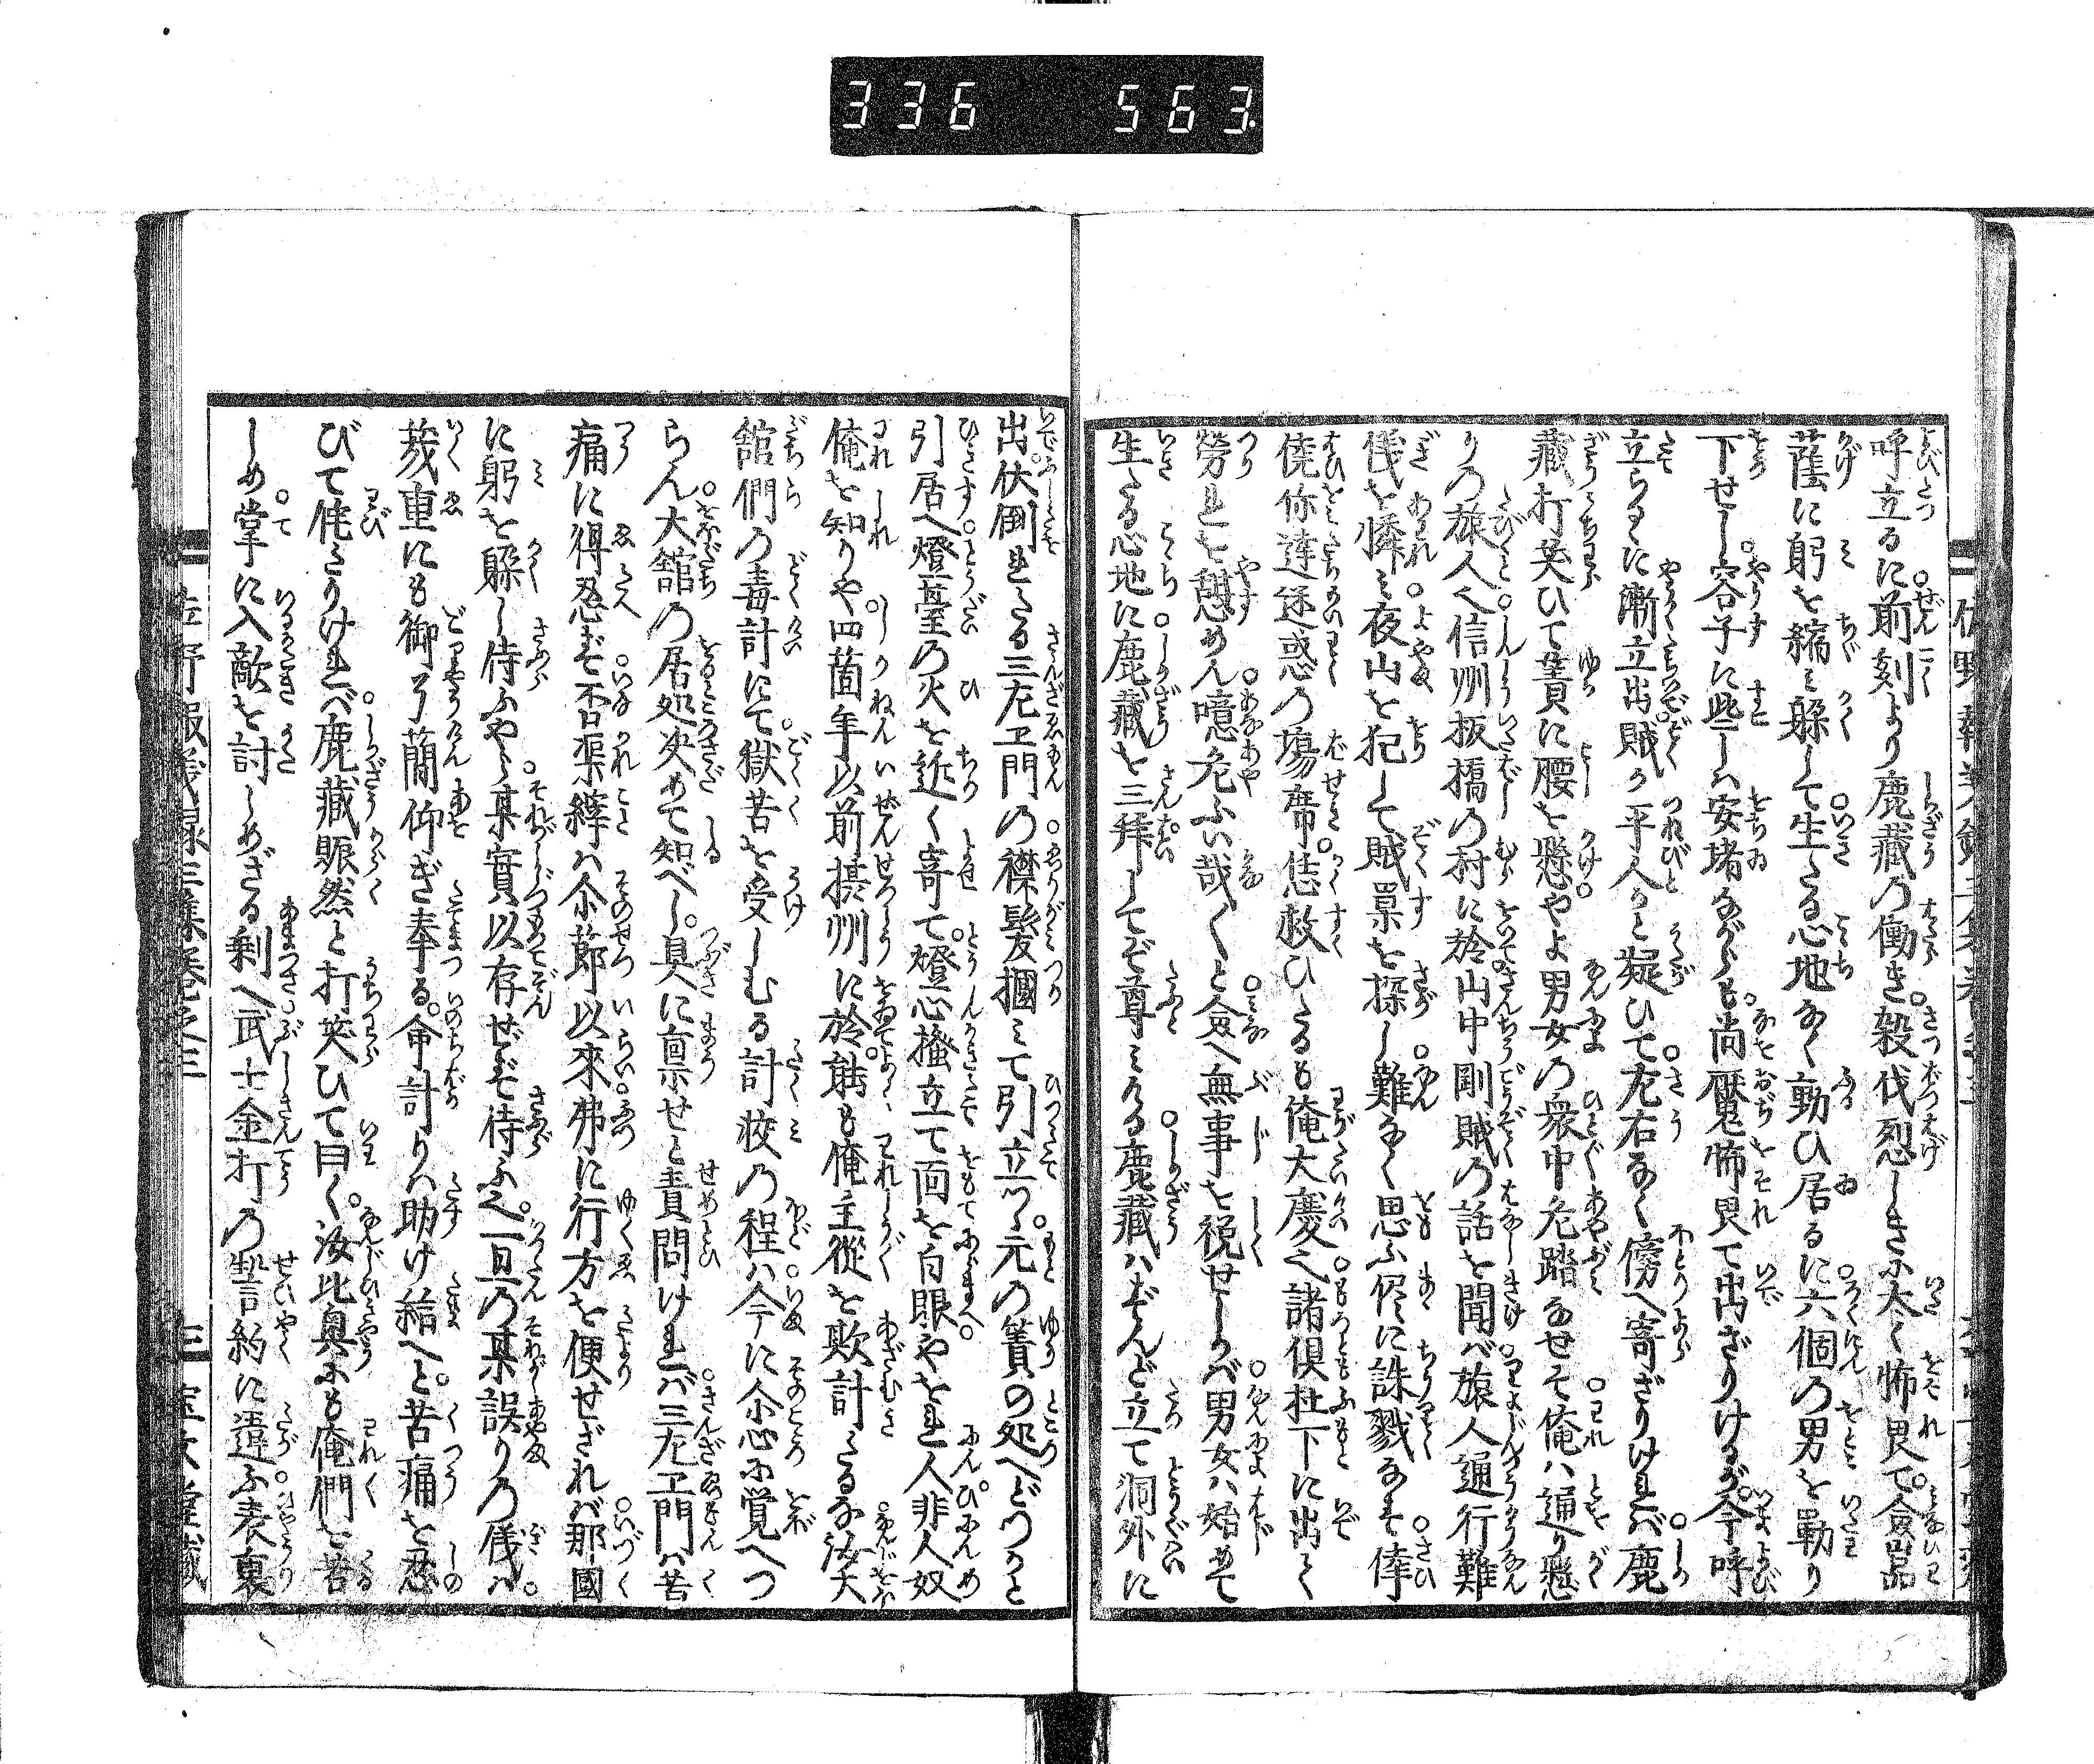 336 563
呼立るに前刻より鹿藏の働き殺伐烈しきに太く怖畏て僉岩
蔭に躬を縮み躱して生たる心地なく動ひ居るに六個の男を勒り
下せし容子に些しハ安堵ながらも尚魘怖畏て出ざりけるが今呼
立らるに漸立出賊か平人かと疑ひて左右なく傍へ寄ざりけれバ鹿
藏打笑ひて簀に腰を懸やよ男女の衆中危踏なせそ俺ハ通り懸
りの旅人也信州板橋の村に於山中剛賊の話を聞バ旅人通行難
儀を憐み夜山を犯して賊巣を探し難なく思ふ侭に誅戮なす倖
僥你達迷惑の塲席恁救ひたるも俺大慶也諸倶杜下に出て
勞れを憩めん噫危ふい哉〱と僉へ無事を祝せしかバ男女ハ始めて
生たる心地に鹿藏を三拜してぞ尊みける鹿藏ハずんど立て洞外に
出伏倒れたる三左エ門の襟髪摑みて引立つゝ元の簀の処へどつかと
引居へ燈臺の火を近く寄て燈心搔立て面を白眼やをれ人非人奴
俺を知りや四箇年以前摂州に於能も俺主從を欺計たるな汝大
舘們の毒計にて獄苦を受しむる計校の程ハ今に尒心に覚へつ
らん大舘の居処决めて知べし具に禀せと責問けれバ三左エ門ハ苦
痛に得忍ず否渠縡ハ尒節以來弗に行方を便せざれバ那國
に躬を躱し侍ふやら某實以存ぜず侍ふ也一旦の某誤りの儀ハ
幾重にも御了簡仰ぎ奉る命計りハ助け給へと苦痛を忍
びて侘たりけれバ鹿藏賑然と打笑ひて曰く汝比興にも俺們を苦
しめ掌に入敵を討しめざる剰へ武士金打の誓約に違ふ表裏